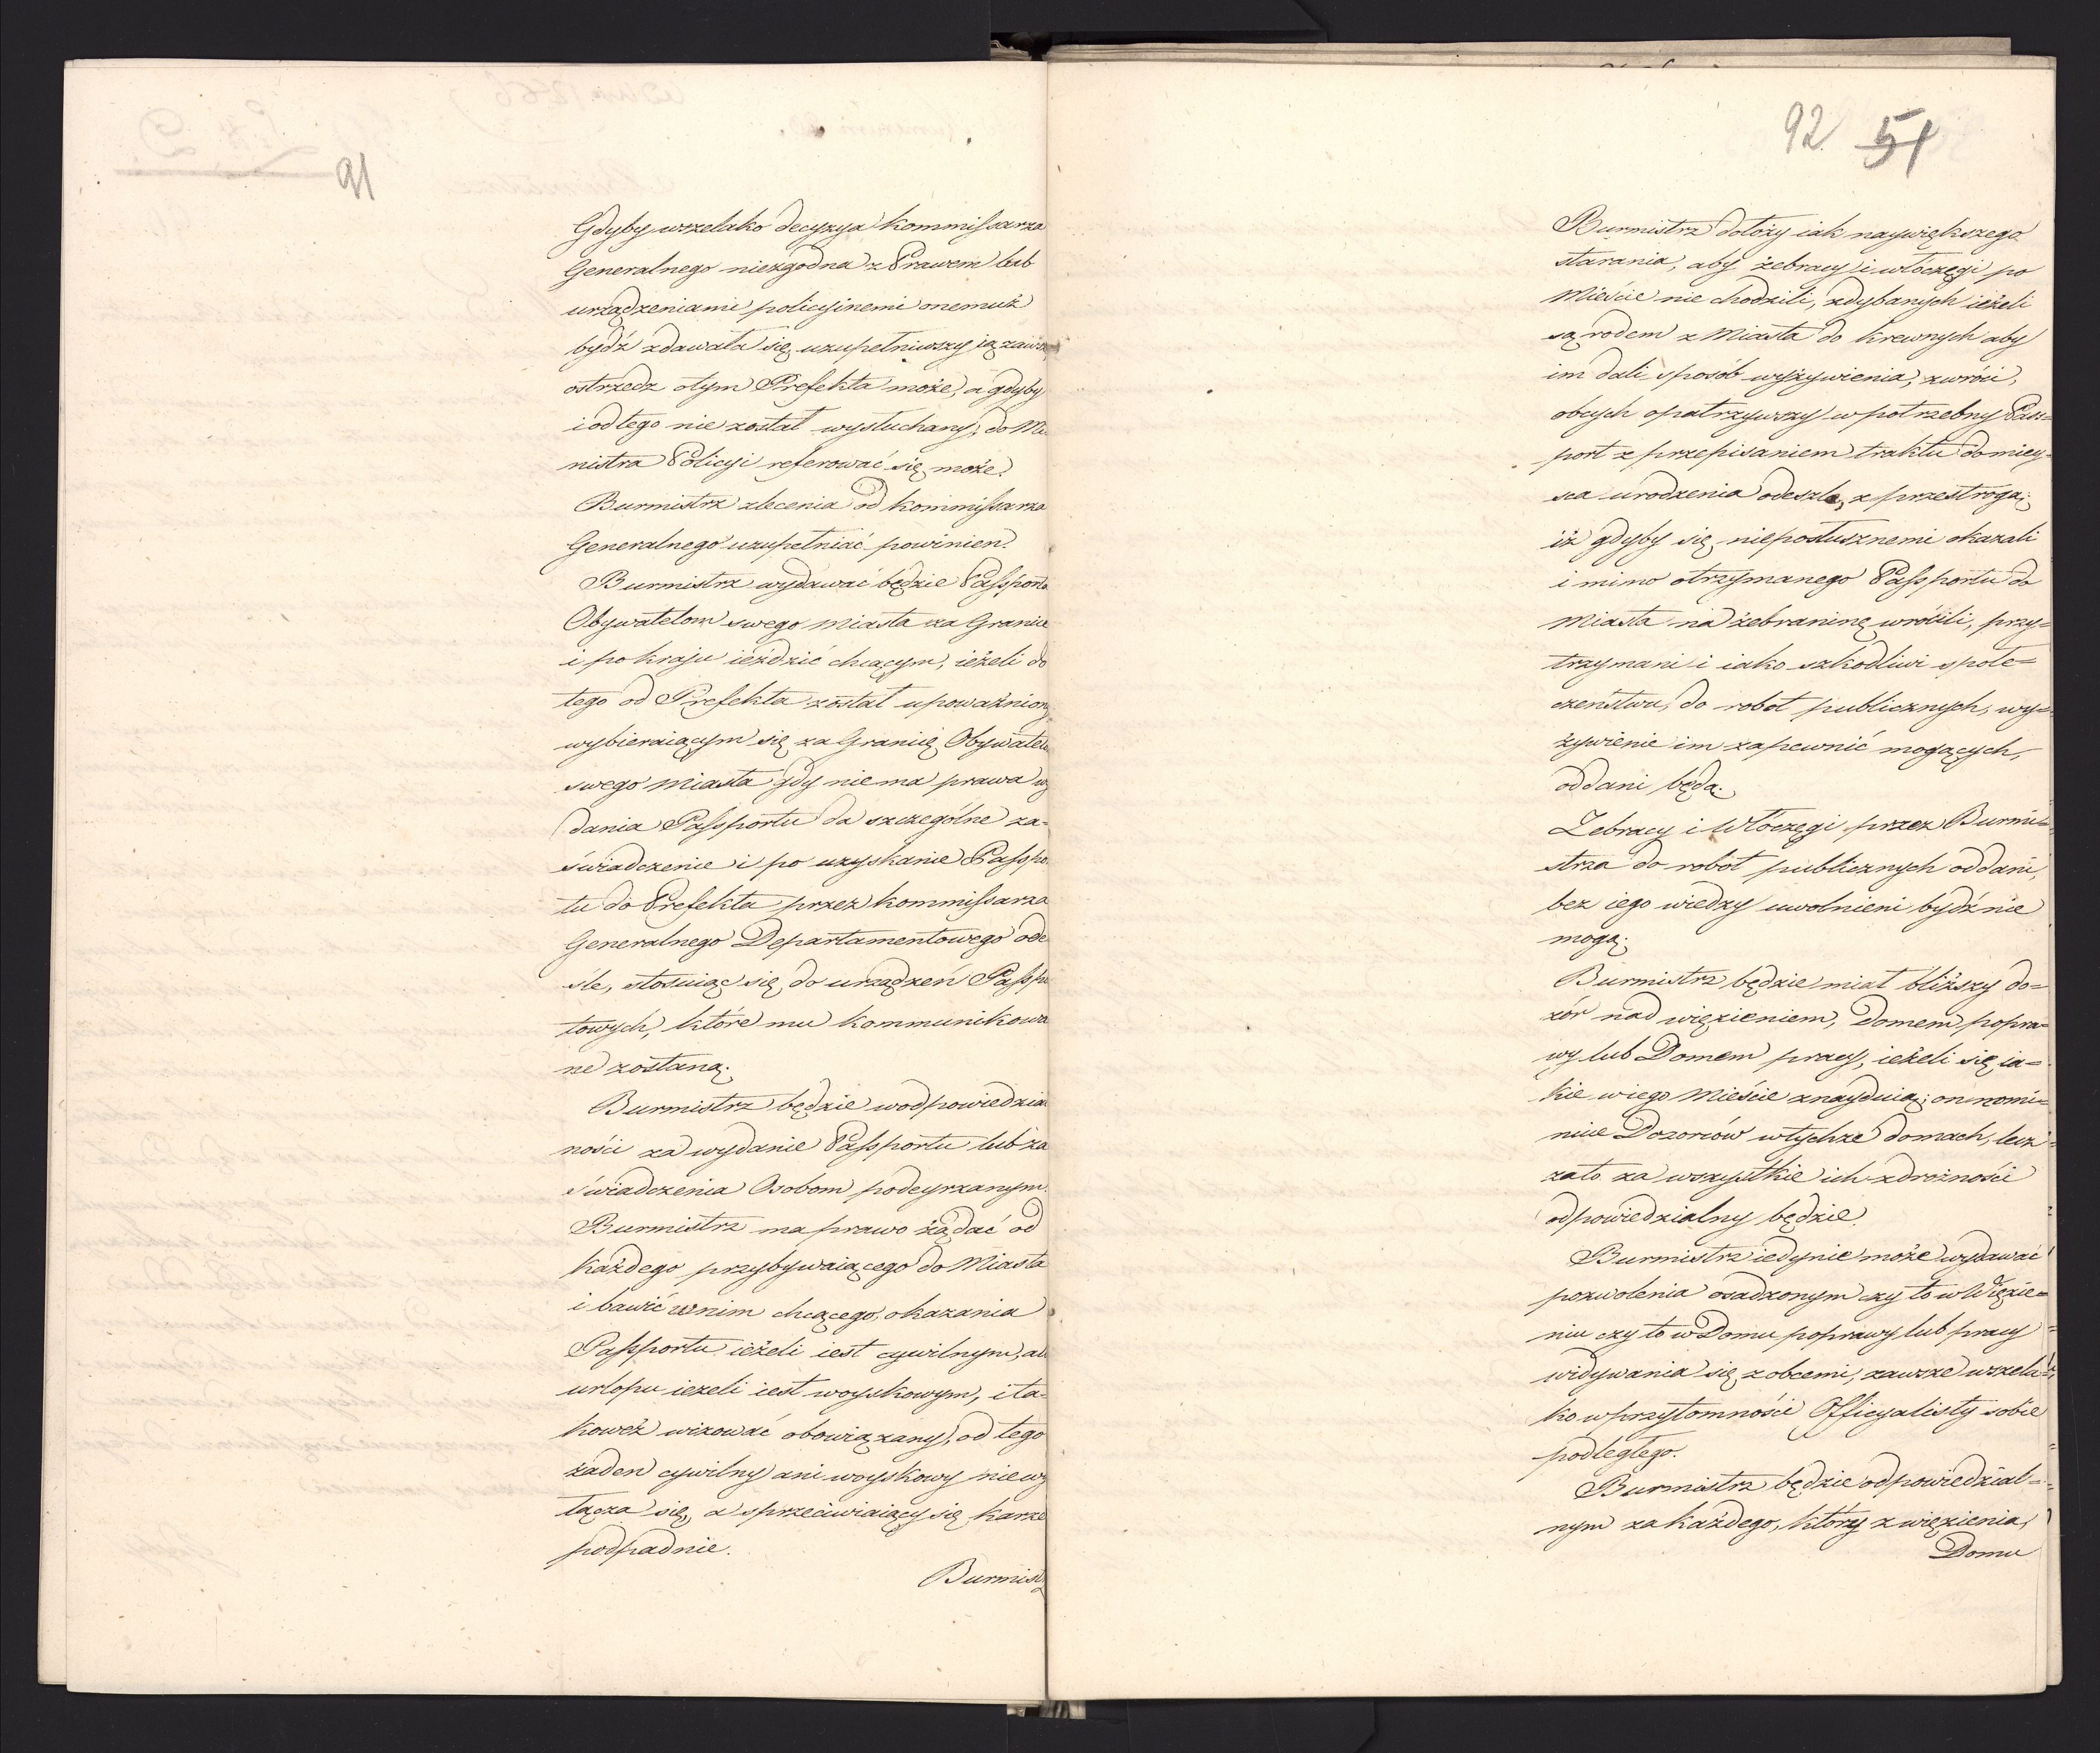 91
Gdyby wszelako decyzya kommissarza
Generalnego niezgodna z Prawem lub
urządzeniami policyinemi onemuż
bydź zdawała się, uzupełniwszy ią zawsze
ostrzedz otym Prefekta może, a gdyby
i od tego nie został wysłuchany, do Mi
nistra Policyi referować się może.
Burmistrz zlecenia od kommissarza
Generalnego uzupełniać powinien.
Burmistrz wydawać będzie Passporta
Obywatelom swego miasta za Granice
i po kraju ieździć chcącym, ieżeli do
tego od Prefekta został upoważniony
wybieraiącym się za Granicę Obywatelom
swego miasta gdy niema prawa wy
dania Passportu da szczególne za-
świadczenie i po uzyskanie Passpo
tu do Prefekta przez kommissarza
Generalnego Departamentowego ode
śle, stosuiąc się do urządzeń Passpo
towych, które mu kommunikowa
ne zostaną.
Burmistrz będzie w odpowiedzial
ności za wydanie Passportu lub za
świadczenia Osobom podeyrzanym.
Burmistrz ma prawo żądać od
każdego przybywaiącego do Miasta
i bawić w nim chcącego, okazania
Passportu ieżeli iest cywilnym, al
urlopu ieżeli iest woyskowym, i ta-
koweż wizować obowiązany, od tego
żaden cywilny ani woyskowy nie wy
łącza się, a sprzeciwiaiący się karze
podpadnie.
Burmistrz
92 51
Burmistrz dołoży iak naywiększego
starania, aby żebracy i włóczęgi po
Mieście nie chodzili, zdybanych ieżeli
są rodem z Miasta do krewnych aby
im dali sposób wyżywienia, zwróci,
obcych opatrzywszy w potrzebny Pass=
port z przepisaniem traktu do miey=
sca urodzenia odeszle, z przestrogą;
iż gdyby się nieposłusznemi okazali
i mimo otrzymanego Passportu do
Miasta na żebraninę wrócili, przy=
trzymani i iako szkodliwi społe=
czeństwu, do robot publicznych, wy=
żywienie im zapewnić mogących,
oddani będą.
Żebracy i Włóczęgi przez Burmi=
strza do robot publicznych oddani,
bez iego wiedzy uwolnieni bydź nie
mogą.
Burmistrz będzie miał bliższy do=
zór nad więzieniem, Domem popra=
wy lub Domem pracy, ieżeli się ia=
kie w iego Mieście znayduią; on nomi=
nuie Dozorców w tychże domach, lecz
zato za wszystkie ich zdrożności
odpowiedzialny będzie.
Burmistrz iedynie może wydawać
pozwolenia osadzonym czy to w Więzie=
niu czy to w Domu poprawy lub pracy
widywania się z obcemi, zawsze wszela=
ko w przytomności Officyalisty sobie
podległego.
Burmistrz będzie odpowiedzial=
nym za każdego, który z więzienia,
Domu